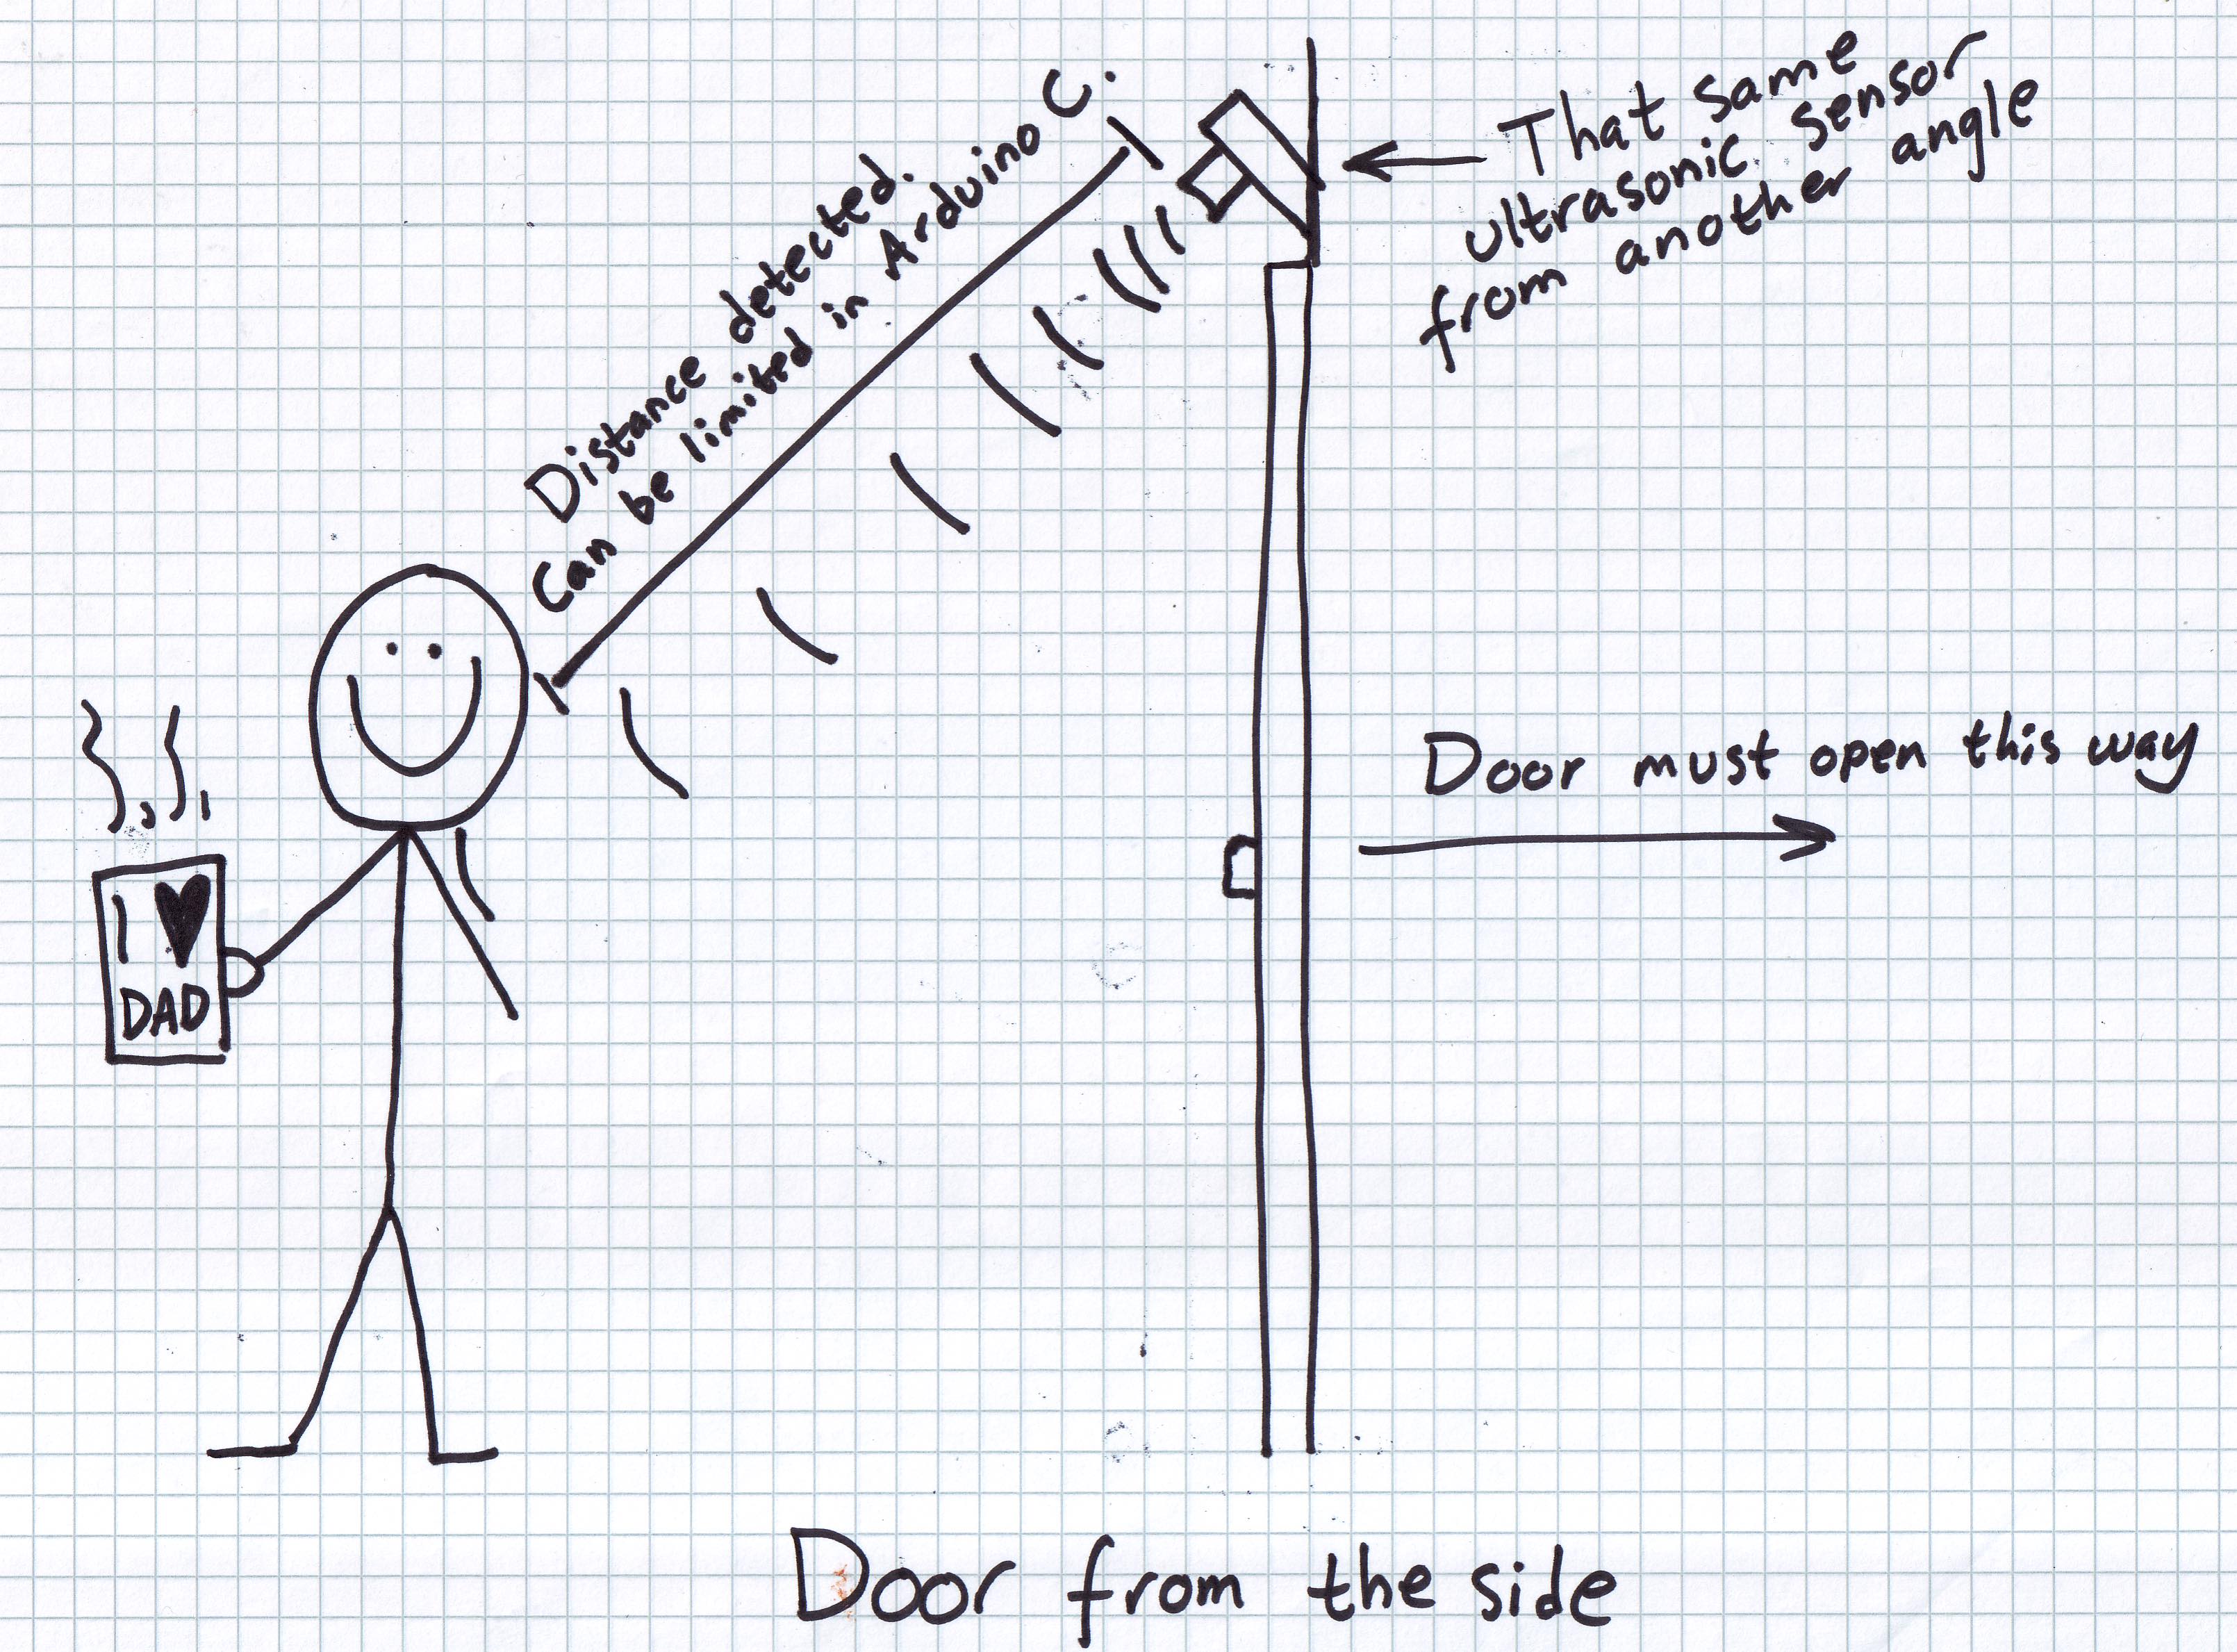 Distance detected.
Can be limited in Arduino C.
That same
ultrasonic sensor
from another angle
Door must open this way
I ♥
DAD
Door from the side